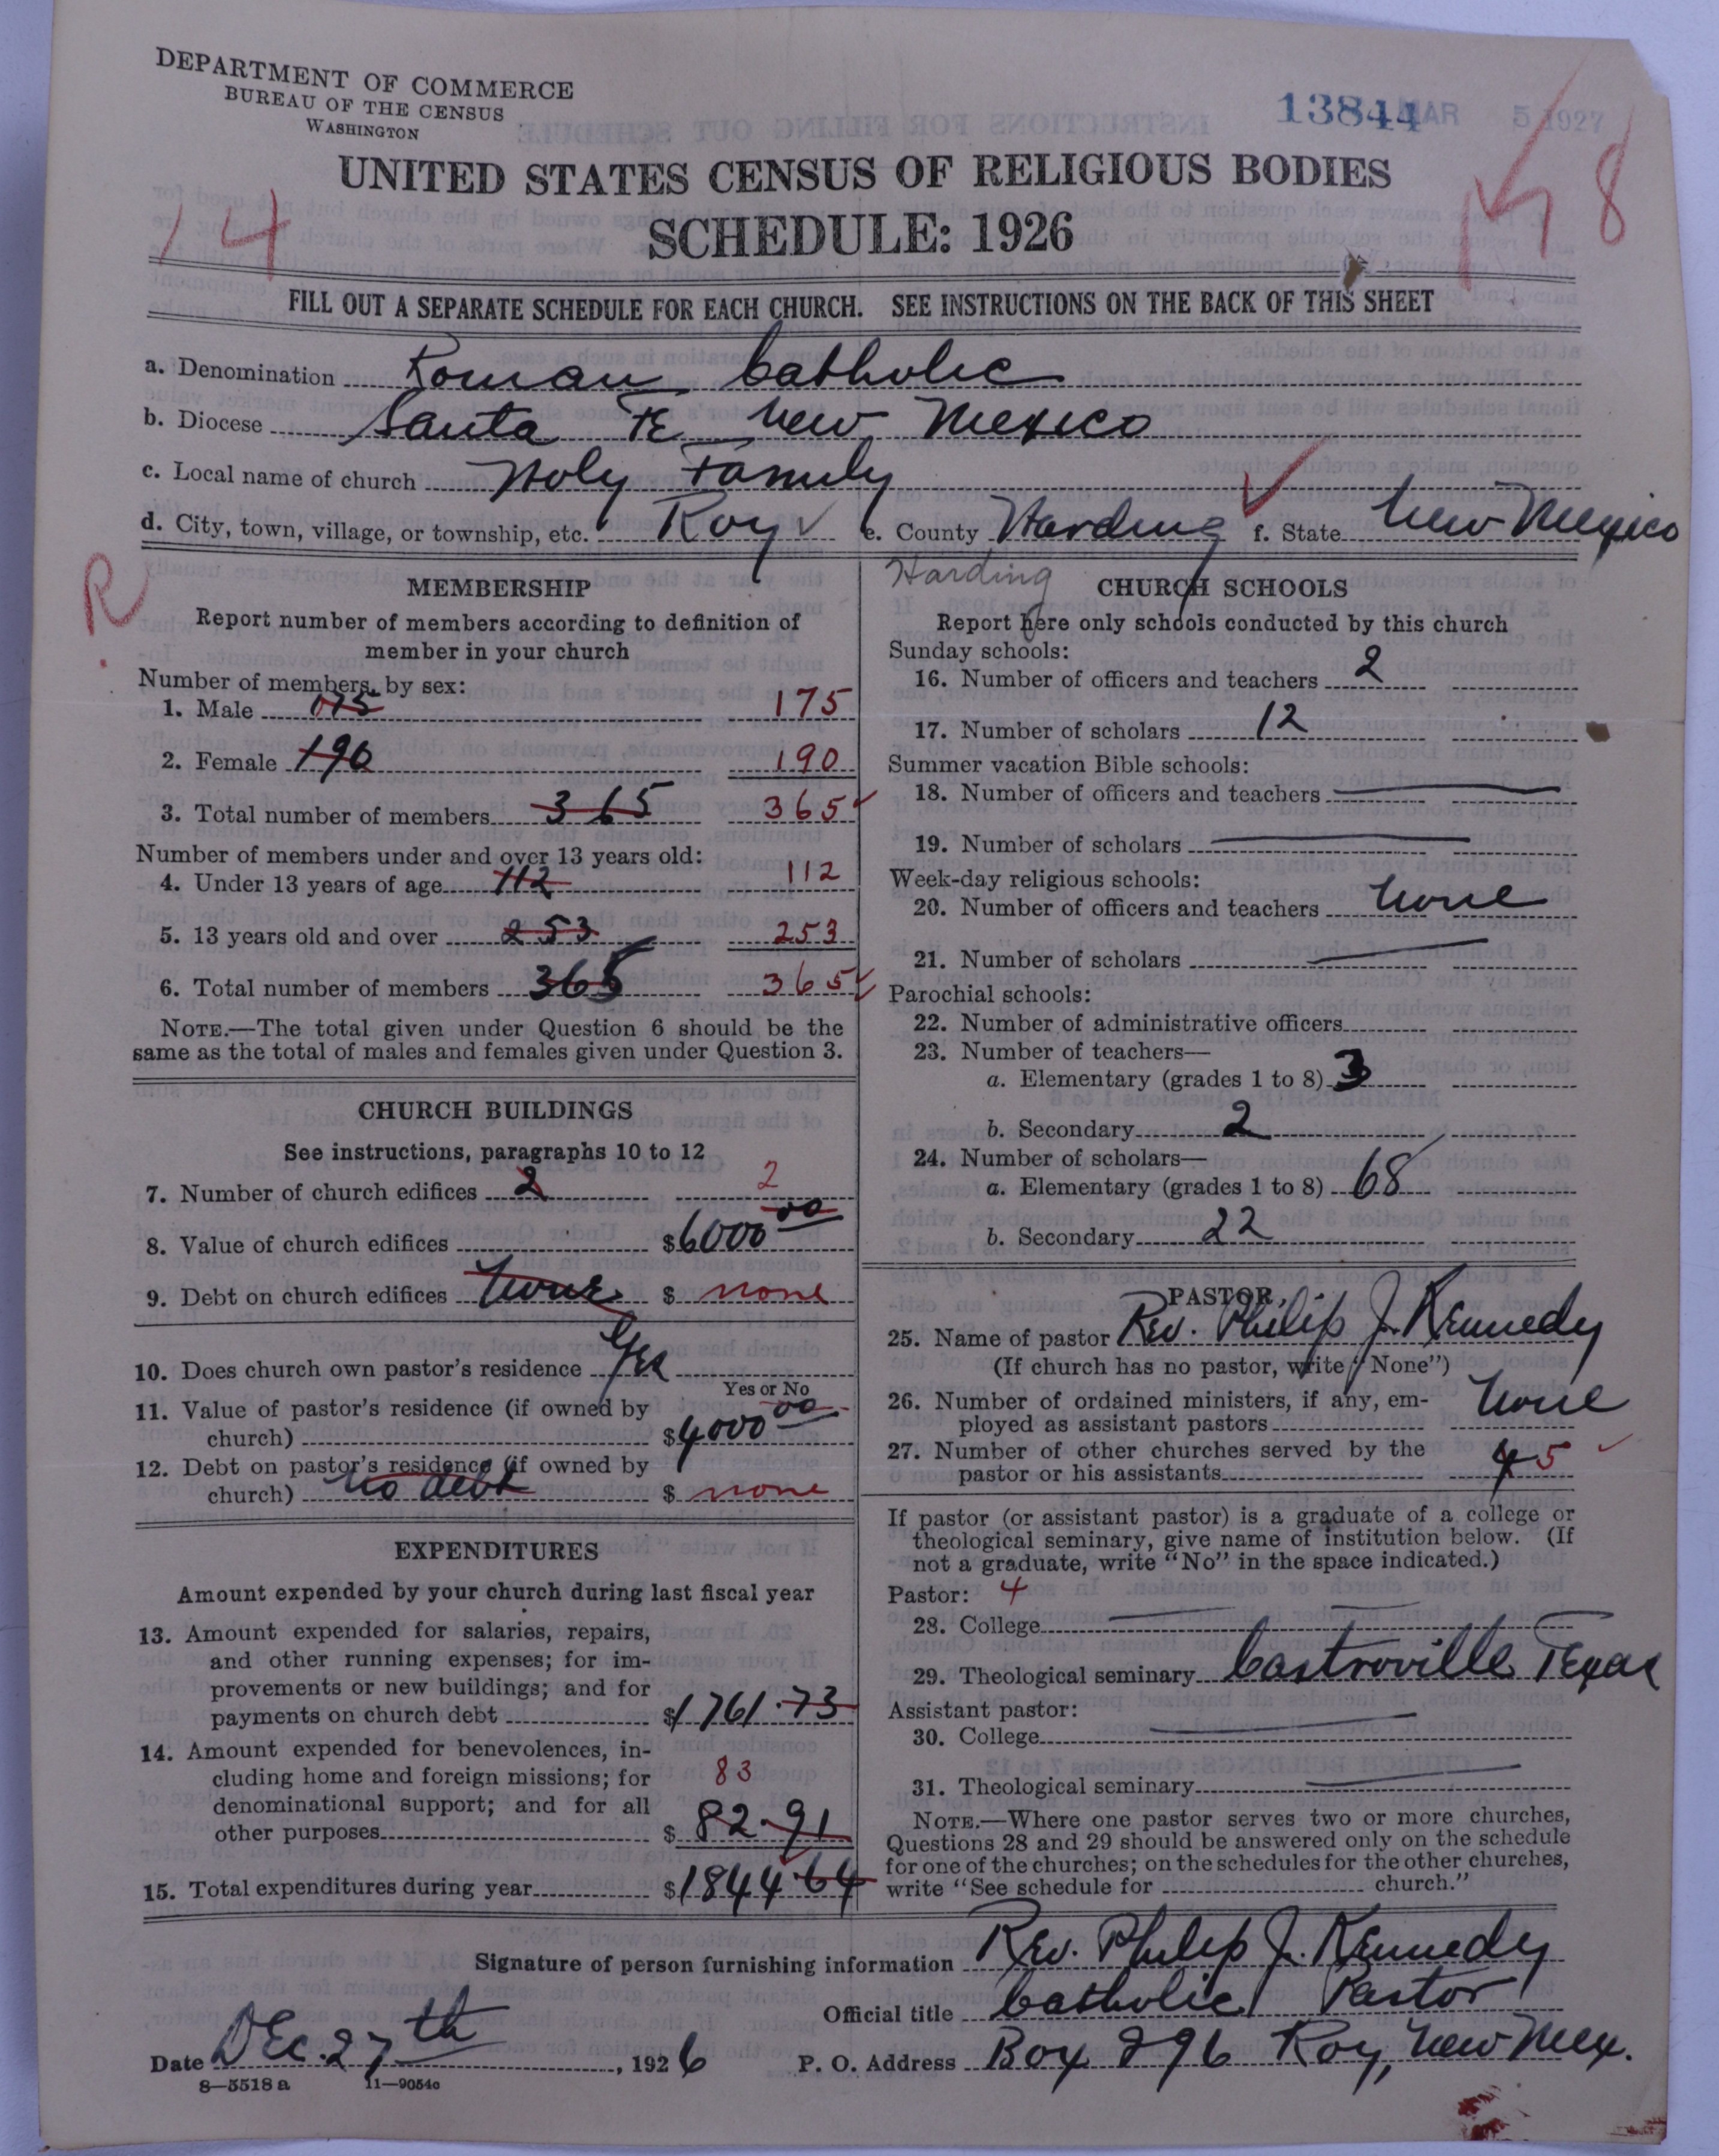 DEPARTMENT OF COMMERCE
BUREAU OF THE CENSUS
WASHINGTON
13844 MAR 5 1927
UNITED STATES CENSUS OF RELIGIOUS BODIES
SCHEDULE: 1926
14
8
FILL OUT A SEPARATE SCHEDULE FOR EACH CHURCH. SEE INSTRUCTIONS ON THE BACK OF THIS SHEET
a. Denomination Roman Catholic
b. Diocese Santa Fe New Mexico
c. Local name of church Holy Family
d. City, town, village, or township, etc. Roy ✓ e. County Harding ✓ f. State New Mexico
R
MEMBERSHIP
Report number of members according to definition of
member in your church
Number of members, by sex:
1. Male 175 175
2. Female 190 190
3. Total number of members 365 365 ✓
Number of members under and over 13 years old:
4. Under 13 years of age 112 112
5. 13 years old and over 253 253
6. Total number of members 365 365 ✓
NOTE.—The total given under Question 6 should be the
same as the total of males and females given under Question 3.
CHURCH BUILDINGS
See instructions, paragraphs 10 to 12
7. Number of church edifices 2 2
8. Value of church edifices $6000 00
9. Debt on church edifices None $ none
10. Does church own pastor's residence Yes
Yes or No
11. Value of pastor's residence (if owned by
church) $4000 00
12. Debt on pastor's residence (if owned by
church) No debt $ none
EXPENDITURES
Amount expended by your church during last fiscal year
13. Amount expended for salaries, repairs,
and other running expenses; for im-
provements or new buildings; and for
payments on church debt $1761.73
14. Amount expended for benevolences, in-
cluding home and foreign missions; for 83
denominational support; and for all
other purposes $ 82.91
15. Total expenditures during year $1844.64
Harding
CHURCH SCHOOLS
Report here only schools conducted by this church
Sunday schools:
16. Number of officers and teachers 2
17. Number of scholars 12
Summer vacation Bible schools:
18. Number of officers and teachers
19. Number of scholars
Week-day religious schools:
20. Number of officers and teachers None
21. Number of scholars
Parochial schools:
22. Number of administrative officers
23. Number of teachers—
a. Elementary (grades 1 to 8) 3
b. Secondary 2
24. Number of scholars—
a. Elementary (grades 1 to 8) 68
b. Secondary 22
PASTOR
25. Name of pastor Rev. Philip J. Kennedy
(If church has no pastor, write "None")
26. Number of ordained ministers, if any, em-
ployed as assistant pastors None
27. Number of other churches served by the
pastor or his assistants 4 5 ✓
If pastor (or assistant pastor) is a graduate of a college or
theological seminary, give name of institution below. (If
not a graduate, write "No" in the space indicated.)
Pastor: 4
28. College
29. Theological seminary Castroville Texas
Assistant pastor:
30. College
31. Theological seminary
NOTE.—Where one pastor serves two or more churches,
Questions 28 and 29 should be answered only on the schedule
for one of the churches; on the schedules for the other churches,
write "See schedule for church."
Signature of person furnishing information Rev. Philip J. Kennedy
Official title Catholic Pastor
Date Dec. 27th, 1926 P. O. Address Box 296 Roy, New Mex.
8—5518 a 11—9054c